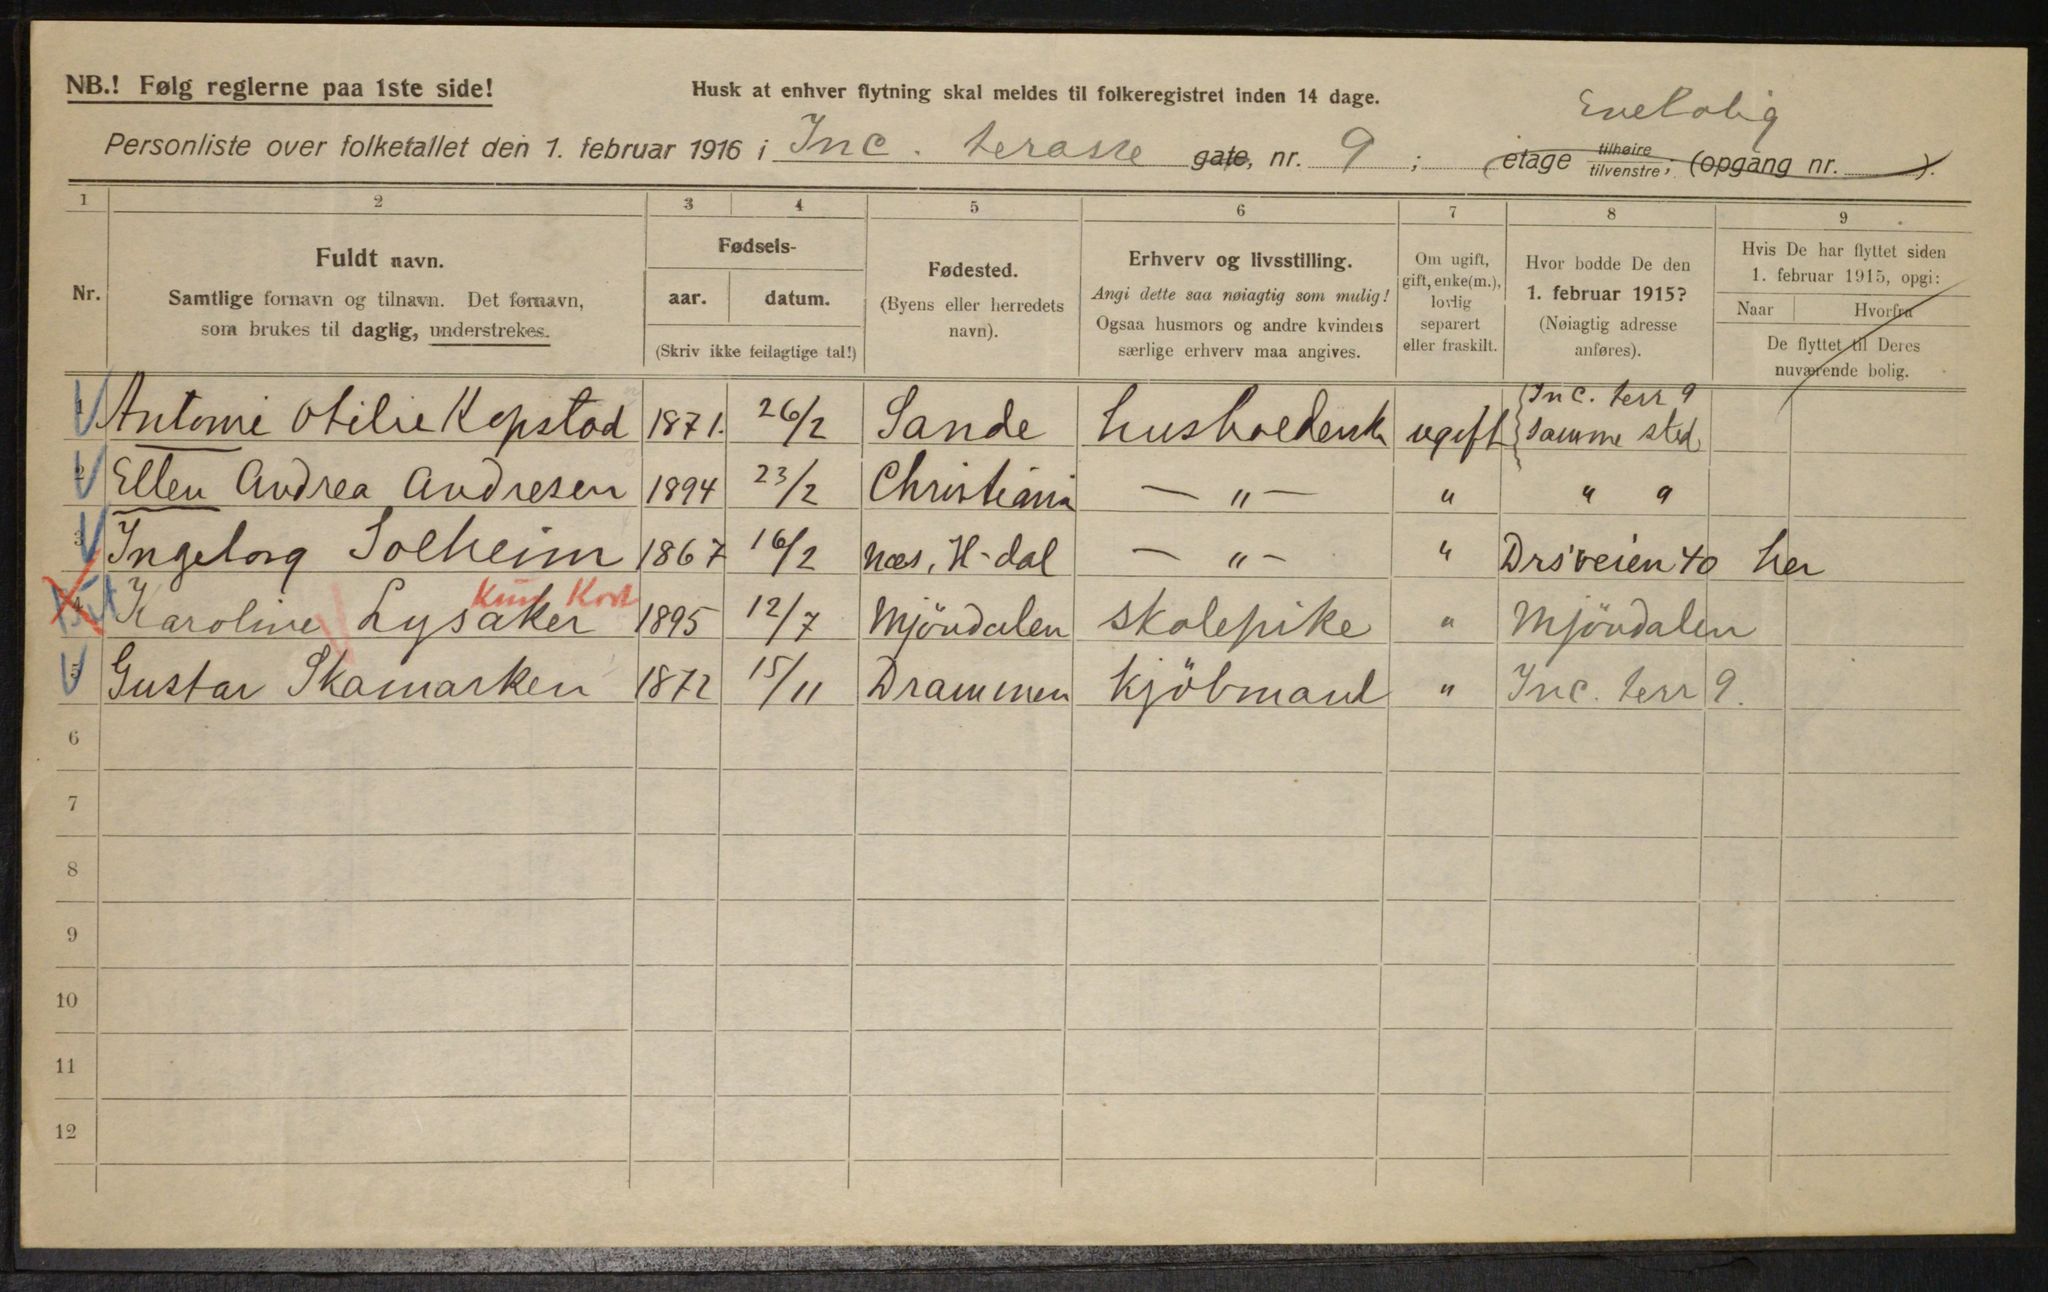 NB.! Følg reglerne paa 1ste side!
Husk at enhver flytning skal meldes til folkeregistret inden 14 dage.
Enebolig
Personliste over folketallet den 1. februar 1916 i Inc. terasse gate, nr. 9; etage tilhøire/tilvenstre; (opgang nr. ).
1 2 3 4 5 6 7 8 9
Nr.
Fuldt navn.
Samtlige fornavn og tilnavn. Det fornavn,
som brukes til daglig, understrekes.
Fødsels-
aar. datum.
(Skriv ikke feilagtige tal!)
Fødested.
(Byens eller herredets
navn).
Erhverv og livsstilling.
Angi dette saa nøiagtig som mulig!
Ogsaa husmors og andre kvinders
særlige erhverv maa angives.
Om ugift,
gift, enke(m.),
lovlig
separert
eller fraskilt.
Hvor bodde De den
1. februar 1915?
(Nøiagtig adresse
anføres).
Hvis De har flyttet siden
1. februar 1915, opgi:
Naar Hvorfra
De flyttet til Deres
nuværende bolig.
Inc. terr 9
1 Antonie Otilie Kopstad 1871. 26/2 Sande husholdersk ugift samme sted
2 Ellen Andrea Andresen 1894 23/2 Christiania — " — " " "
3 Ingeborg Solheim 1867 16/2 Næs, H-dal — " — " Drs'veien 40 her
Kun Kort
4 Karoline Lysaker 1895 12/7 Mjöndalen skolepike " Mjöndalen
5 Gustav Skamarken 1872 15/11 Drammen kjöbmand " Inc. terr 9.
6
7
8
9
10
11
12